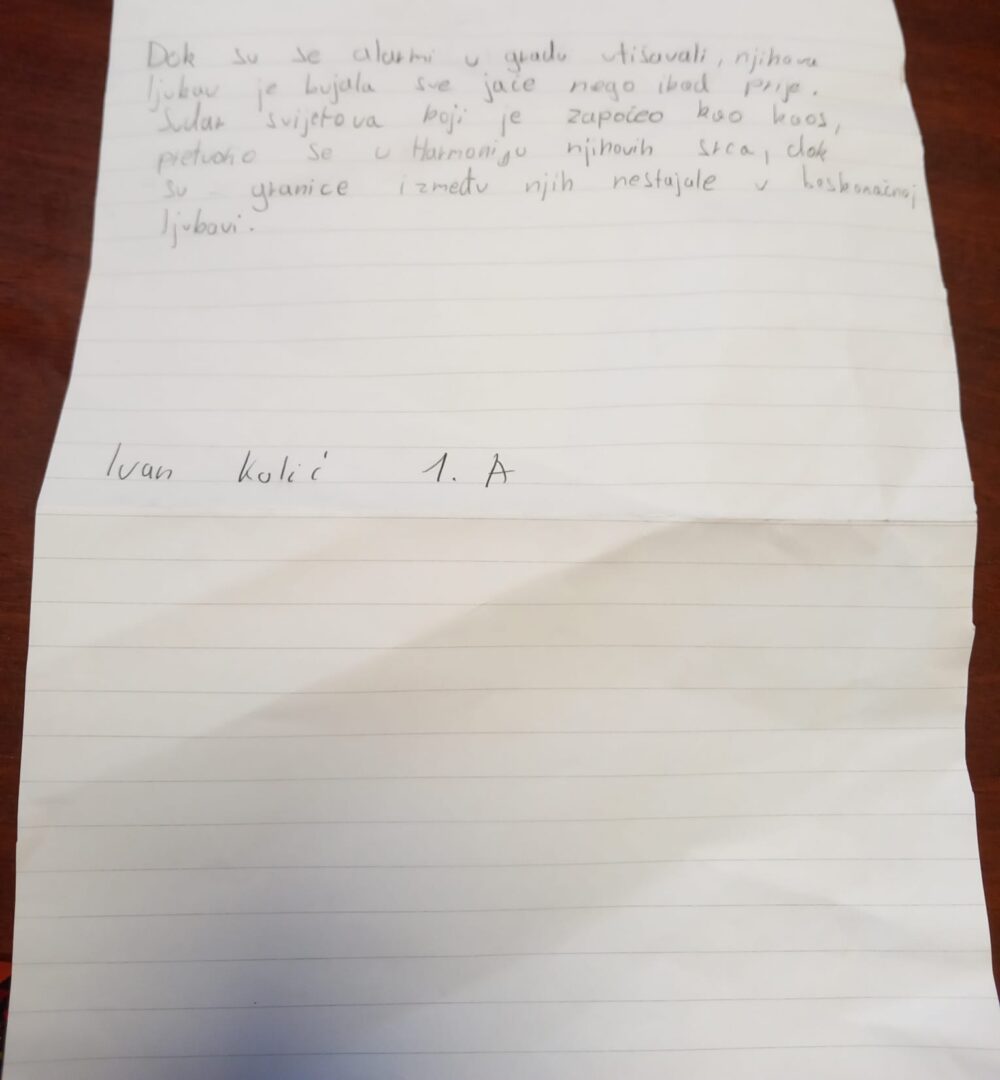 Dok su se alarmi u gradu utišavali, njihova
ljubav je bujala sve jače nego ikad prije.
Sudar svijetova koji je započeo kao kaos,
pretvorio se u Harmoniju njihovih srca, dok
su granice između njih nestajale u beskonačnoj
ljubavi.
Ivan Kolić 1. A